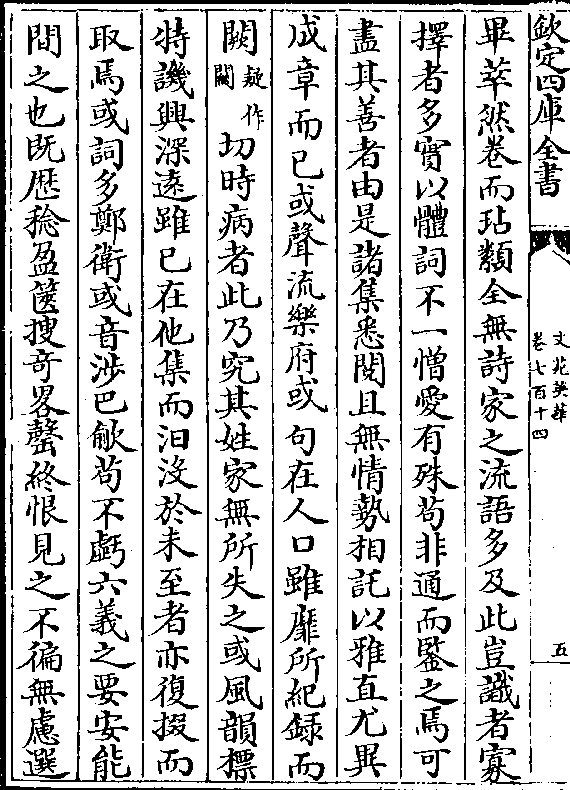 欽定四庫全書
文苑英華
卷七百十四
五
畢萃然卷而玷纇全無詩家之流語多及此豈識者寡
擇者多實以體詞不一憎愛有殊苟非通而鑒之焉可
盡其善者由是諸集悉閱且無情勢相託以雅直尤異
成章而已或聲流樂府或句在人口雖靡所紀録而
闕疑作關切時病者此乃究其姓家無所失之或風韻標
特譏興深遠雖已在他集而汩沒於未至者亦復掇而
取焉或詞多鄭衛或音涉巴歈苟不虧六義之要安能
間之也既歴稔盈篋搜竒畧罄終恨見之不徧無慮選